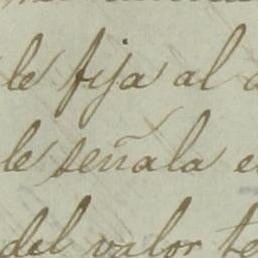 le fija al
le señala
del valor